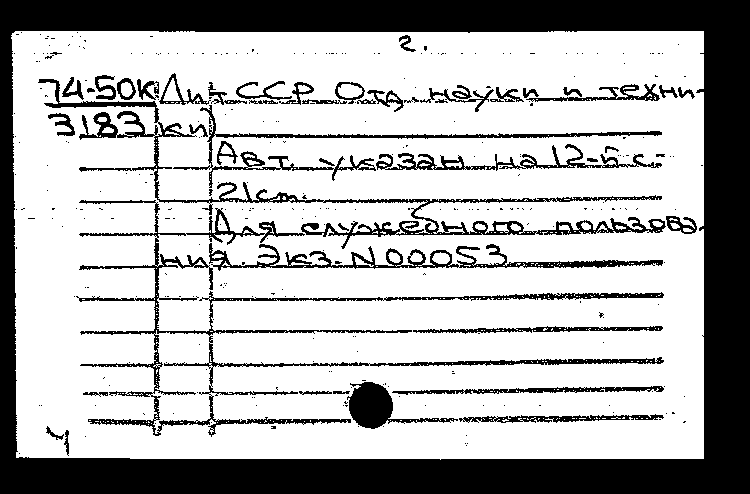 2.
74-50К Лит ССР Отд. науки и техни-
3183 ки)
Авт. указан на 12-й с.-
21 cm.
Для служебного пользова-
ния. Экз. N 00053
Ч